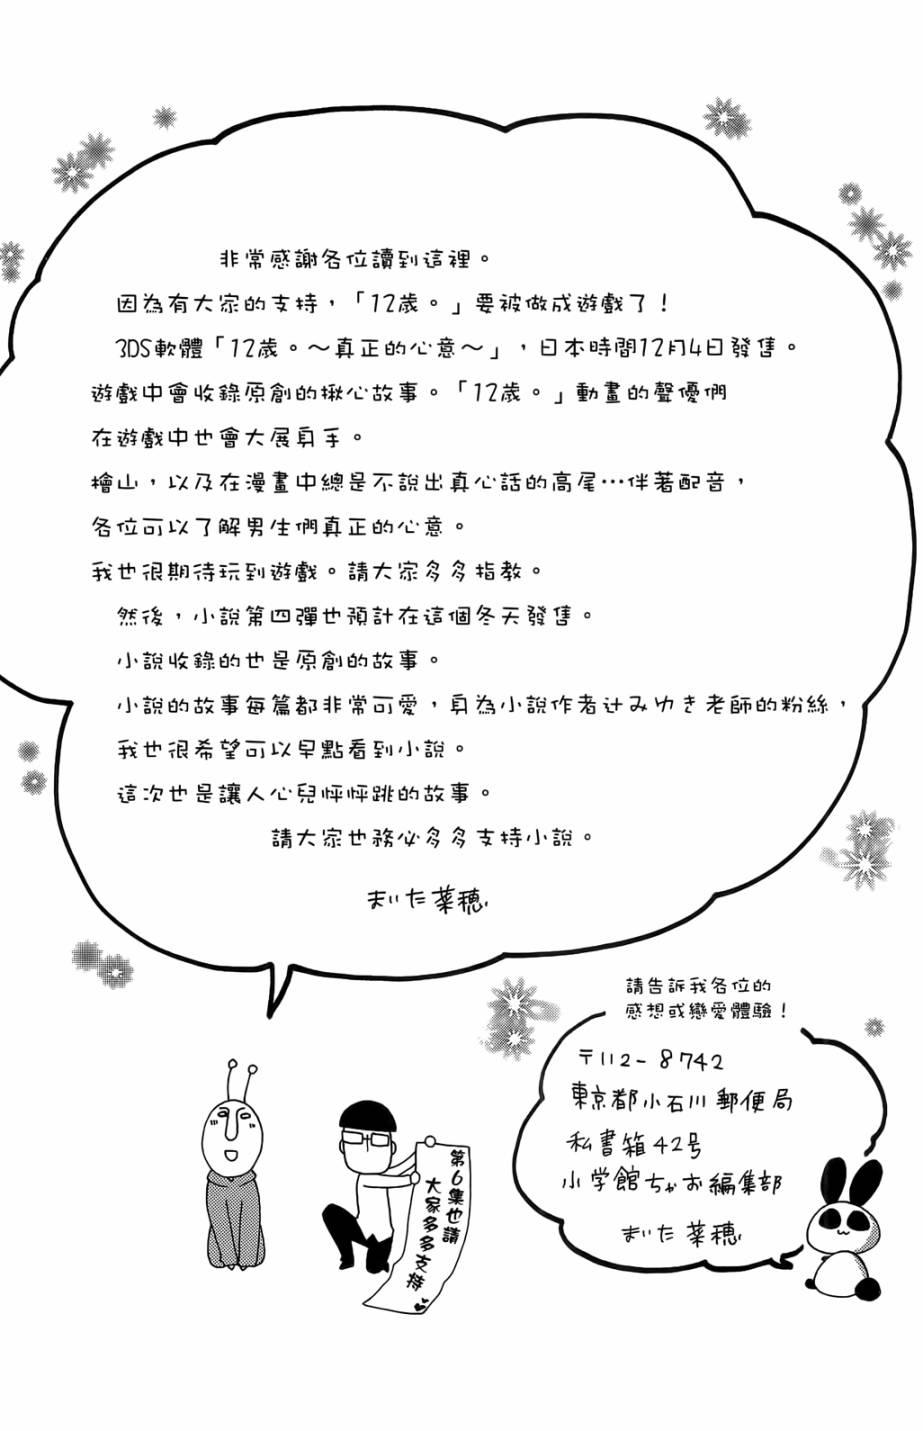 非常感謝各位讀到這裡。
因為有大家的支持，「12歲。」要被做成遊戲了！
3DS軟體「12歲。～真正的心意～」，日本時間12月4日發售。
遊戲中會收錄原創的揪心故事。「12歲。」動畫的聲優們
在遊戲中也會大展身手。
檜山，以及在漫畫中總是不說出真心話的高尾…伴著配音，
各位可以了解男生們真正的心意。
我也很期待玩到遊戲。請大家多多指教。
然後，小說第四彈也預計在這個冬天發售。
小說收錄的也是原創的故事。
小說的故事每篇都非常可愛，身為小說作者辻みゆき老師的粉絲，
我也很希望可以早點看到小說。
這次也是讓人心兒怦怦跳的故事。
請大家也務必多多支持小說。
まいた菜穂
第6集也請
大家多多支持
請告訴我各位的
感想或戀愛體驗！
〒112-8742
東京都小石川郵便局
私書箱42号
小学館ちゃお編集部
まいた菜穂